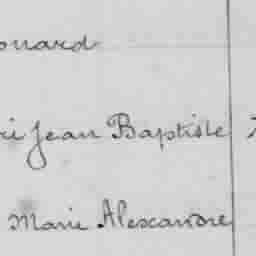 onard
ri Jean Baptiste
Marie Alexandre